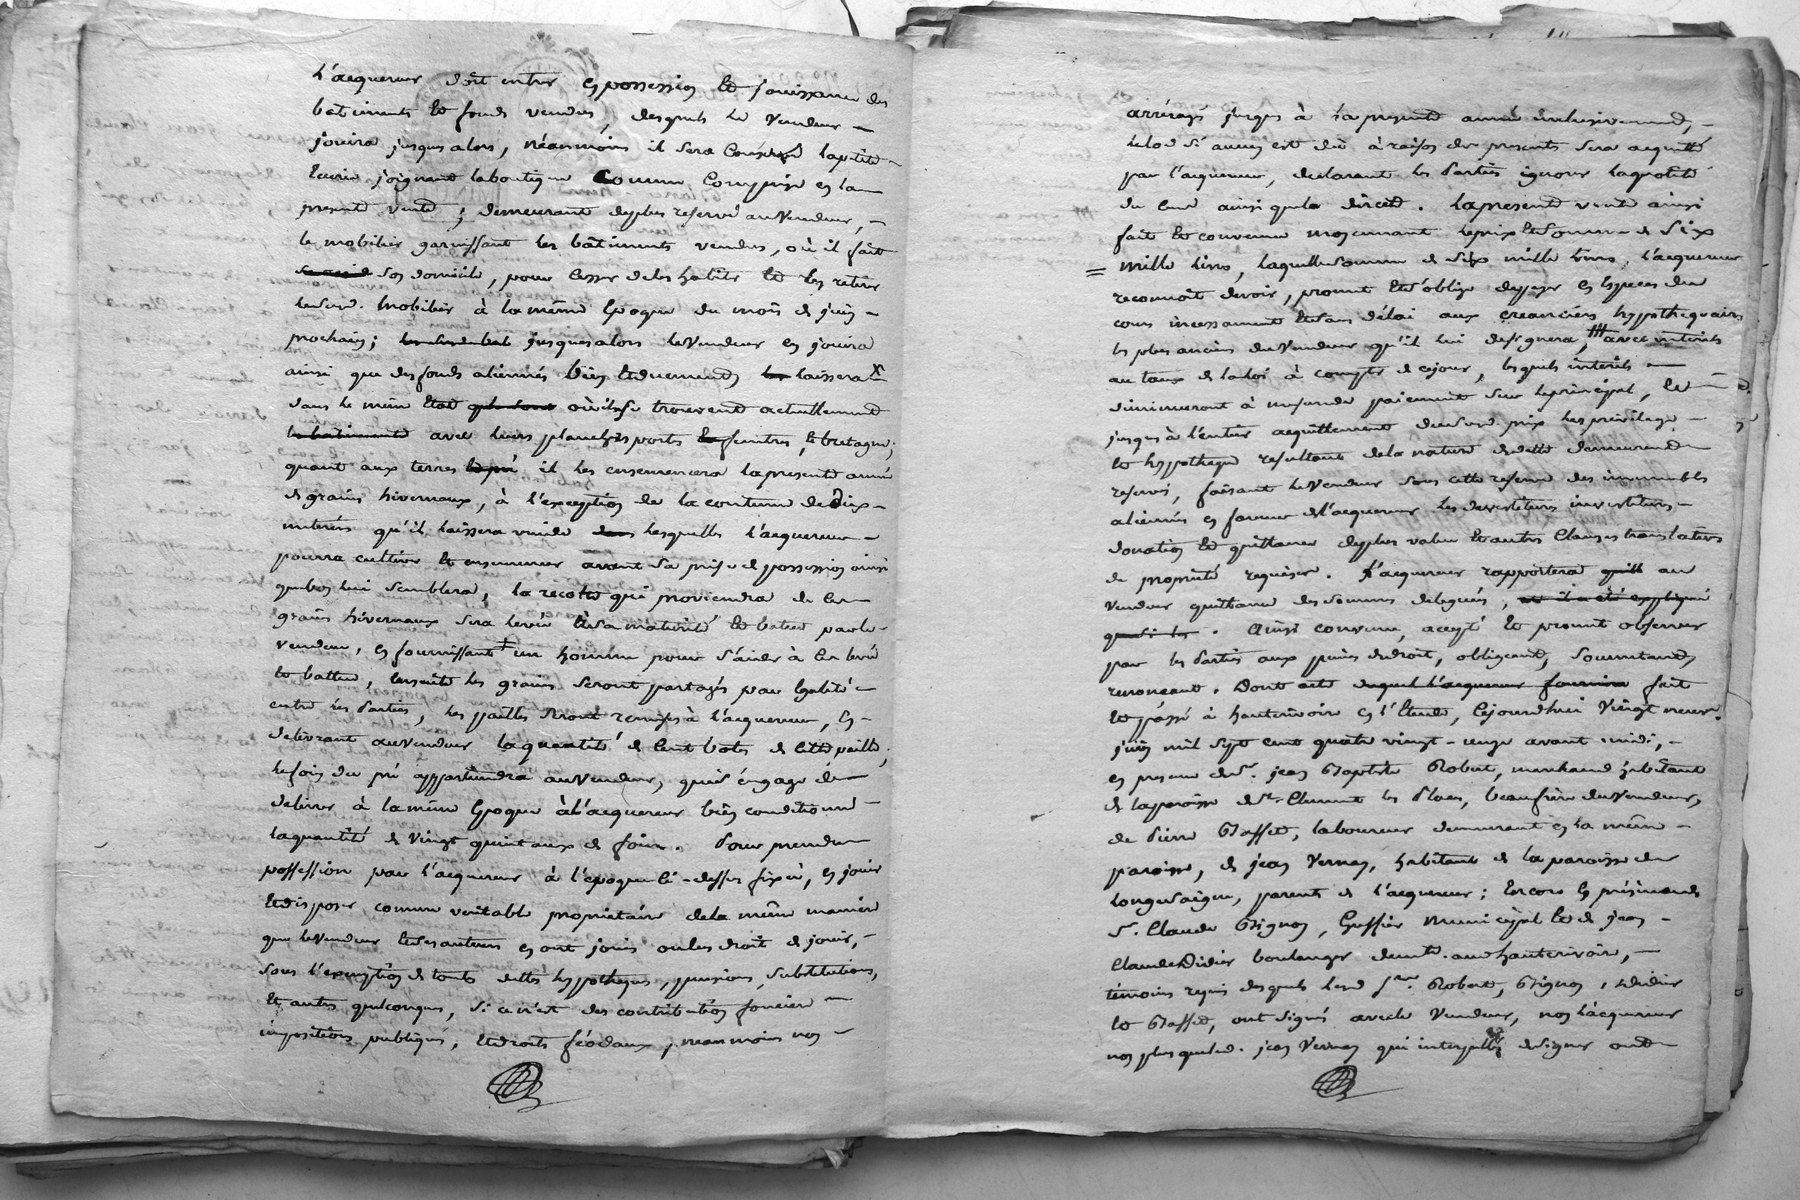 L'acquereur doit entrer en possession et jouissance des
batiments et fonds vendus, desquels le vendeur
jouira jusques alors, néanmoins il sera lapetite
Ecurie joignant laboutique comme comprise en la
presente vente ; demeurant deplus reservé auvendeur,
le mobilier garnissant les bâtiments vendus, où il fait
son domicile, pour cesser deles habiter et les retirer
ledit. mobilier à la même Epoque du mois de juin
prochain; jusques alors levendeur en jouira
ainsi que des fonds aliennés bien et duement, laissera X
dans le même Etat où ils se trouvent actuellement
avec leurs planchers portes fenetres, et bretagne;
quant aux terres il les ensemencera lapresente année
de grains hivernaux, à l'exception de la contenue de dix
méterées qu'il laissera vuide lesquelles l'acquereur
pourra cultiver et ensemencer avant sa prise de possession ainsi
quebon lui semblera, la recolte qui proviendra de ces
grains hivernaux sera levée à sa maturité et battue parle
vendeur, en fournissant un homme pour s'aider à les lever
et battre, ensuite les grains seront partagés par Egalité
entre les parties, les pailles seront remises à l'acquereur, en
delivrant auvendeur laquantité de cent bots de cette paille;
lefoin du pré appartiendra auvendeur, qui s'engage de
delivrer à la même Epoque à l'acquereur bien conditionné
laquantité de vingt quintaux de foin. Pour prendre
possession par l'acquereur à l'epoque ci-dessus fixée, en jouir
et disposer comme veritable proprietaire dela même maniere
que levendeur et ses auteurs en ont joui ou eu droit de jouir,
sous l'exemption de toutes dettes hypotheques, pensions, substitutions,
et autres quelconques, si ce n'est des contributions foncieres
impositions publiques, et droits féodaux, neanmoins non
arréragés jusques à la presente année inclusivement,
lelod si aucun est dû à raison des presentes sera acquitté
par l'acquereur, declarant les parties ignorer laquotité
du cens ainsi quela directe. Lapresente vente ainsi
faite et convenue moyennant leprix et somme de six
mille livres, laquelle somme de six mille livres, l'acquereur
reconnoit devoir, promet et s'oblige depayer en Especes du
cours incessamment et sans délai aux creanciers hypothequaires
les plus anciens duvendeur qu'il lui designera, avec intérêts
au taux de la loi à compter de cejour, lesquels intérêts
diminueront à mesure de paiement sur leprincipal, et
jusques à l'entier acquittement dudit prix les privilege
et hypotheque resultant dela nature de dette demeurent
reservés, faisant levendeur sous cette reserve des immeubles
aliennés en faveur de l'acquereur les devestitures investitures
donation et quittance deplus value et autres clauses translatives
de propriété requises. L'acquereur rapportera au
vendeur quittance des sommes deleguées,
. Ainsi convenu, accepté et promis observer
par les parties aux peines dedroit, obligeant, soumettant,
renonçant. Dont acte fait
et passé à hauterivoire en l'Etude, cejourdhui vingt neuf
juin mil sept cent quatre vingt-onze avant midi,
en presence de Sr. jean Baptiste Robert, marchand habitant
de laparoisse de St. Clement les Places, beaufrere duvendeur,
de Pierre Basset, laboureur demeurant en la même
paroisse, de jean Vernay, habitant de la paroisse de
longessaigne, parent de l'acquereur; Encore en présence de
Sr. Claude Bignon, Greffier municipal et de jean
Claude Didier boulanger audit hauterivoire,
témoins requis desquels lesd. Srs. Robert, Bignon, Didier
et Basset, ont signé avecle vendeur, non l'acquereur
non plus queled. jean Vernay qui interpellés designer ont